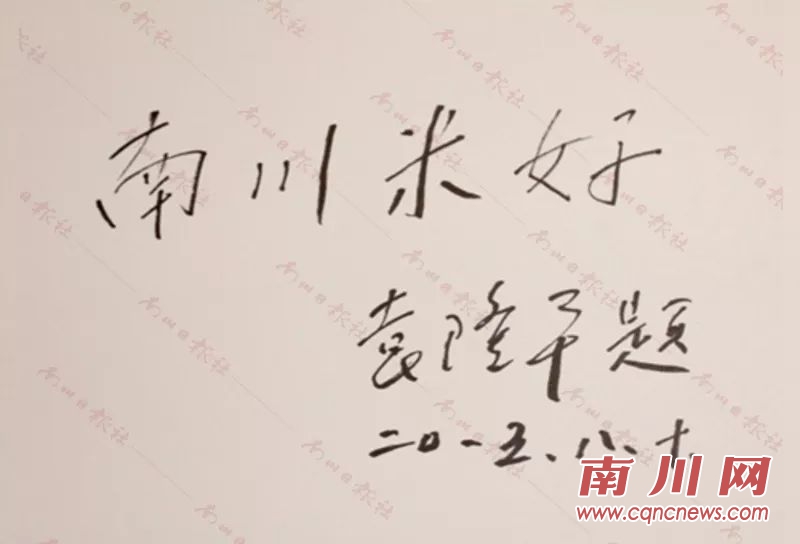 南川米好
袁隆平题
二〇一五、八、十
南川网
www.cqncnews.com
南川日报社